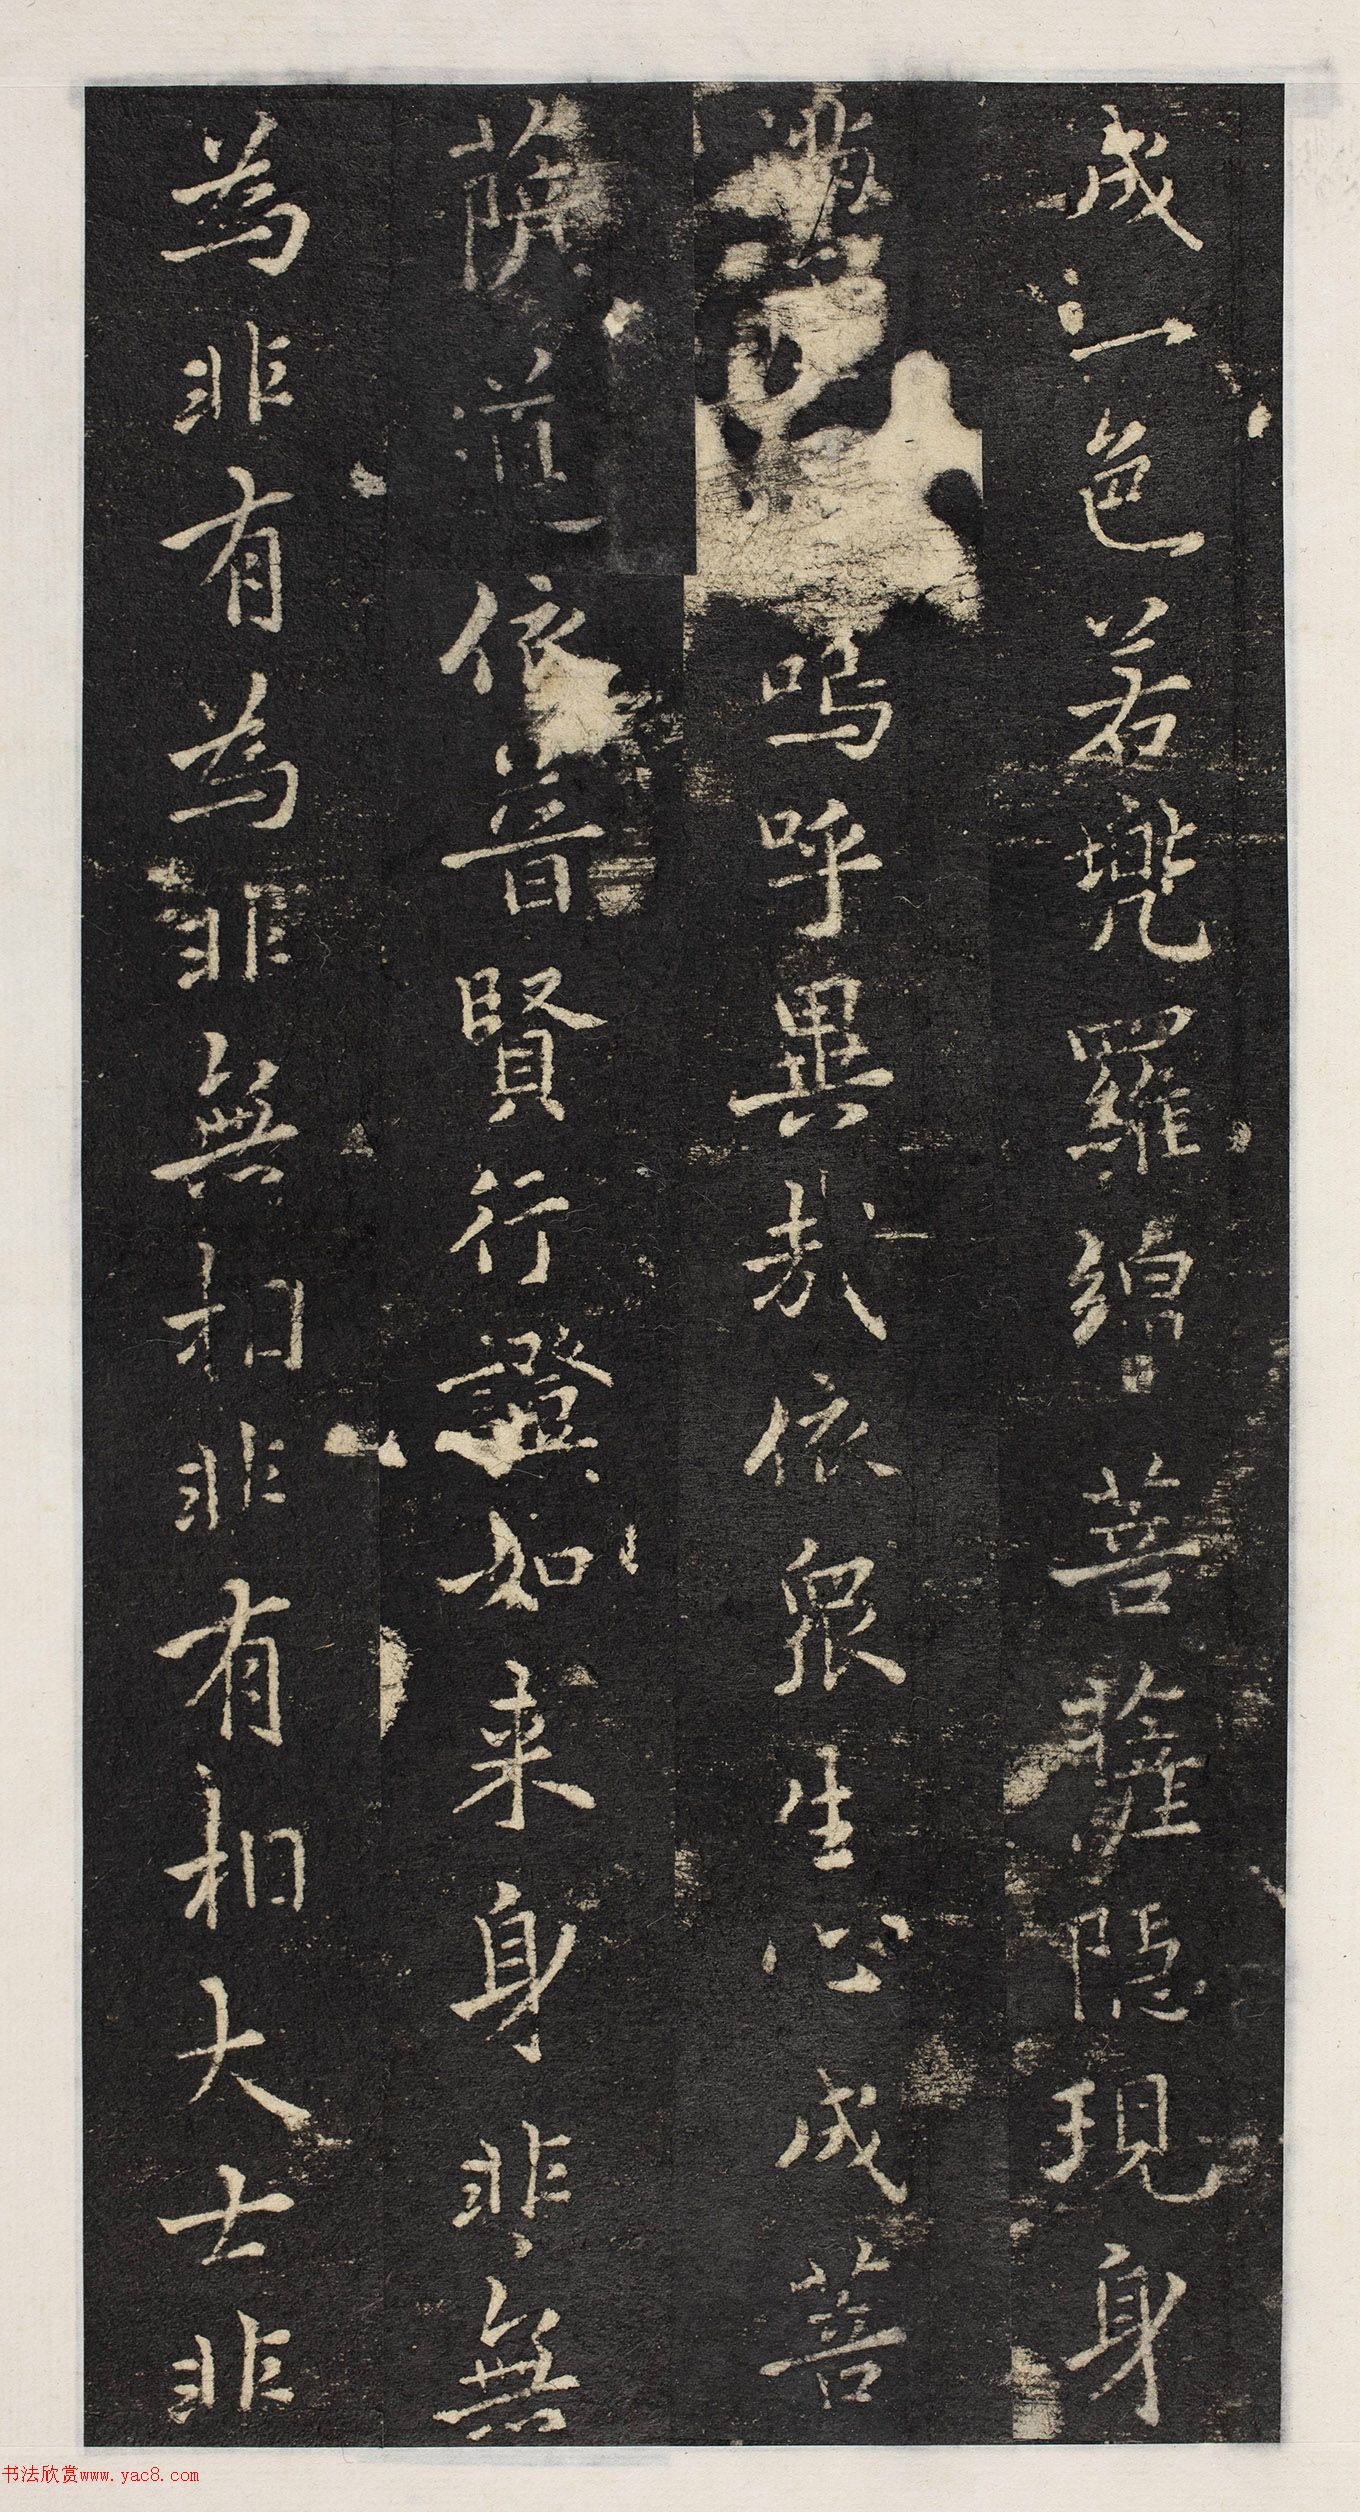 成一色若兠羅綿菩隱現身
嗚呼異哉依衆生心成菩
薩道依普賢行證如来身非無
為非有為非無相非有相大士非
书法欣赏www.yac8.com